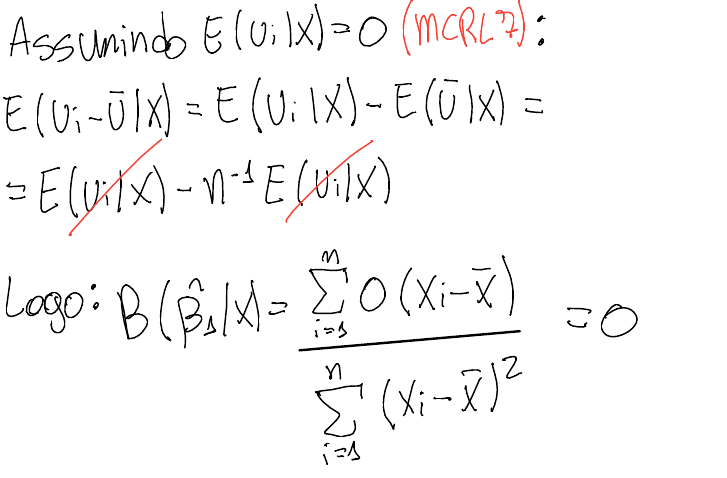 Assumindo E(Ui|X)=0 (MCRL7):
E(Ui-Ū|X) = E(Ui|X) - E(Ū|X) =
= E(Ui|X) - n⁻¹ E(Ui|X)
Logo: B(β̂₁|X) = ∑ⁿᵢ₌₁ 0(Xi-X̄) / ∑ⁿᵢ₌₁ (Xi-X̄)² = 0